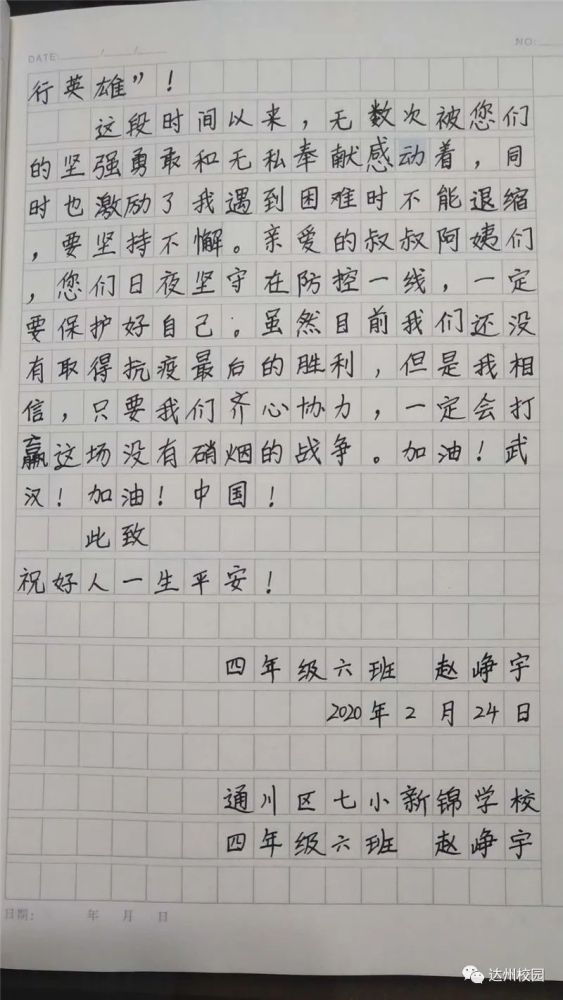 DATE: / /
NO:
行英雄”！
这段时间以来，无数次被您们
的坚强勇敢和无私奉献感动着，同
时也激励了我遇到困难时不能退缩
，要坚持不懈。亲爱的叔叔阿姨们
，您们日夜坚守在防控一线，一定
要保护好自己。虽然目前我们还没
有取得抗疫最后的胜利，但是我相
信，只要我们齐心协力，一定会打
赢这场没有硝烟的战争。加油！武
汉！加油！中国！
此致
祝好人一生平安！
四年级六班 赵峥宇
2020年2月24日
通川区七小新锦学校
四年级六班 赵峥宇
日期: 年 月 日
达州校园